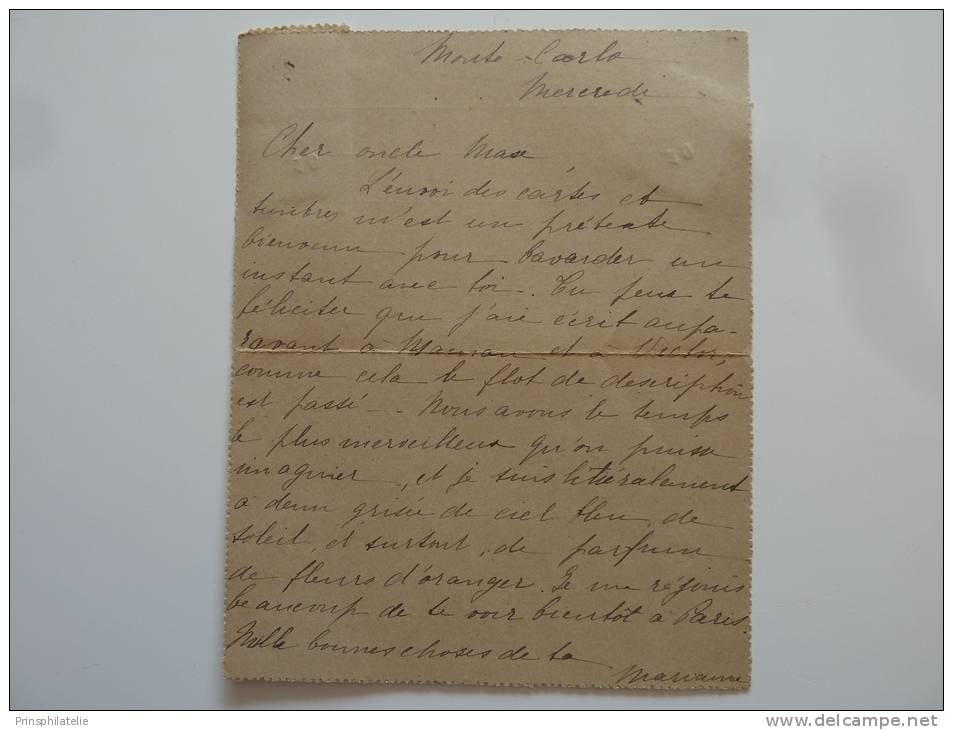 Monte-Carlo
Mercredi
Cher oncle Max
L'envoi des cartes et
timbres m'est un prétexte
bienvenu pour bavarder un
instant avec toi. Tu peux te
féliciter que j'aie écrit aupa-
ravant à Maman et à Victor,
comme cela le flot de description
est passé - . Nous avons le temps
le plus merveilleux qu'on puisse
imaginer, et je suis littéralement
à demi grisée de ciel bleu, de
soleil, et surtout, de parfum
de fleurs d'oranger. Je me réjouis
beaucoup de te voir bientôt à Paris.
Mille bonnes choses de ta
Marianne
Prinsphilatelie
www.delcampe.net